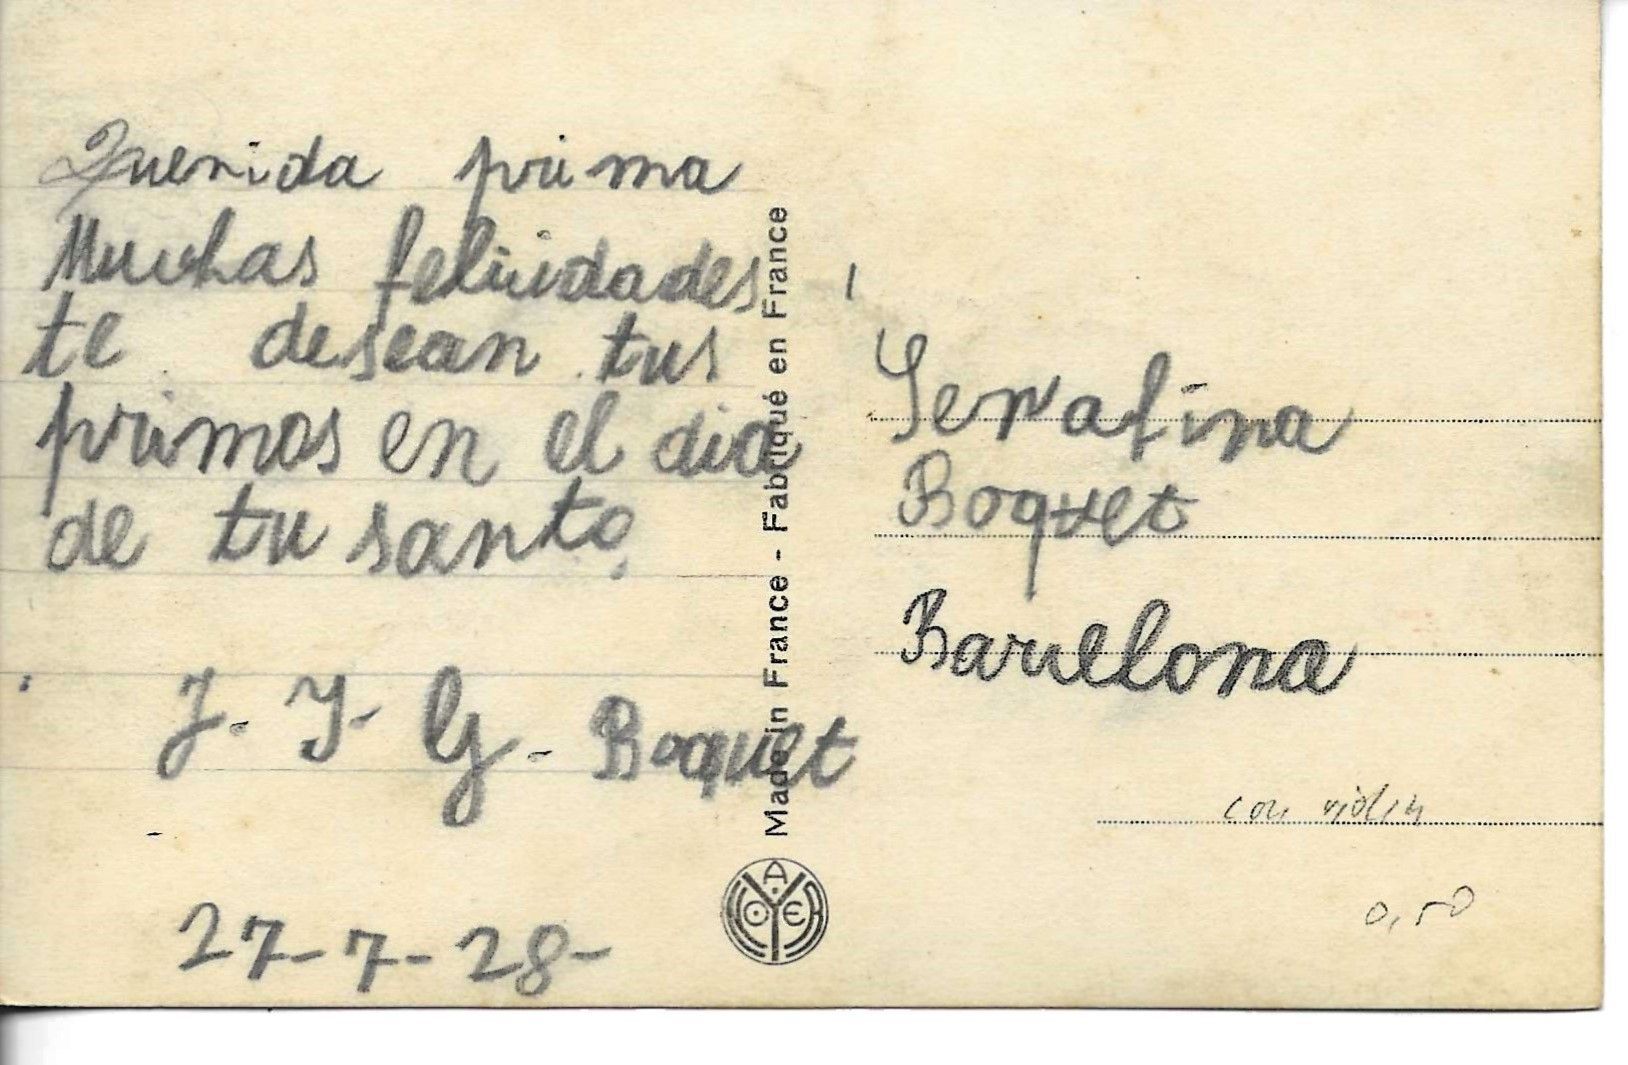 Querida prima
Muchas felicidades
te desean tus
primos en el dia
de tu santo.
J. J. G. Boquet
27-7-28-
Made in France - Fabriqué en France
Serafina
Boquet
Barcelona
con violin
0,50